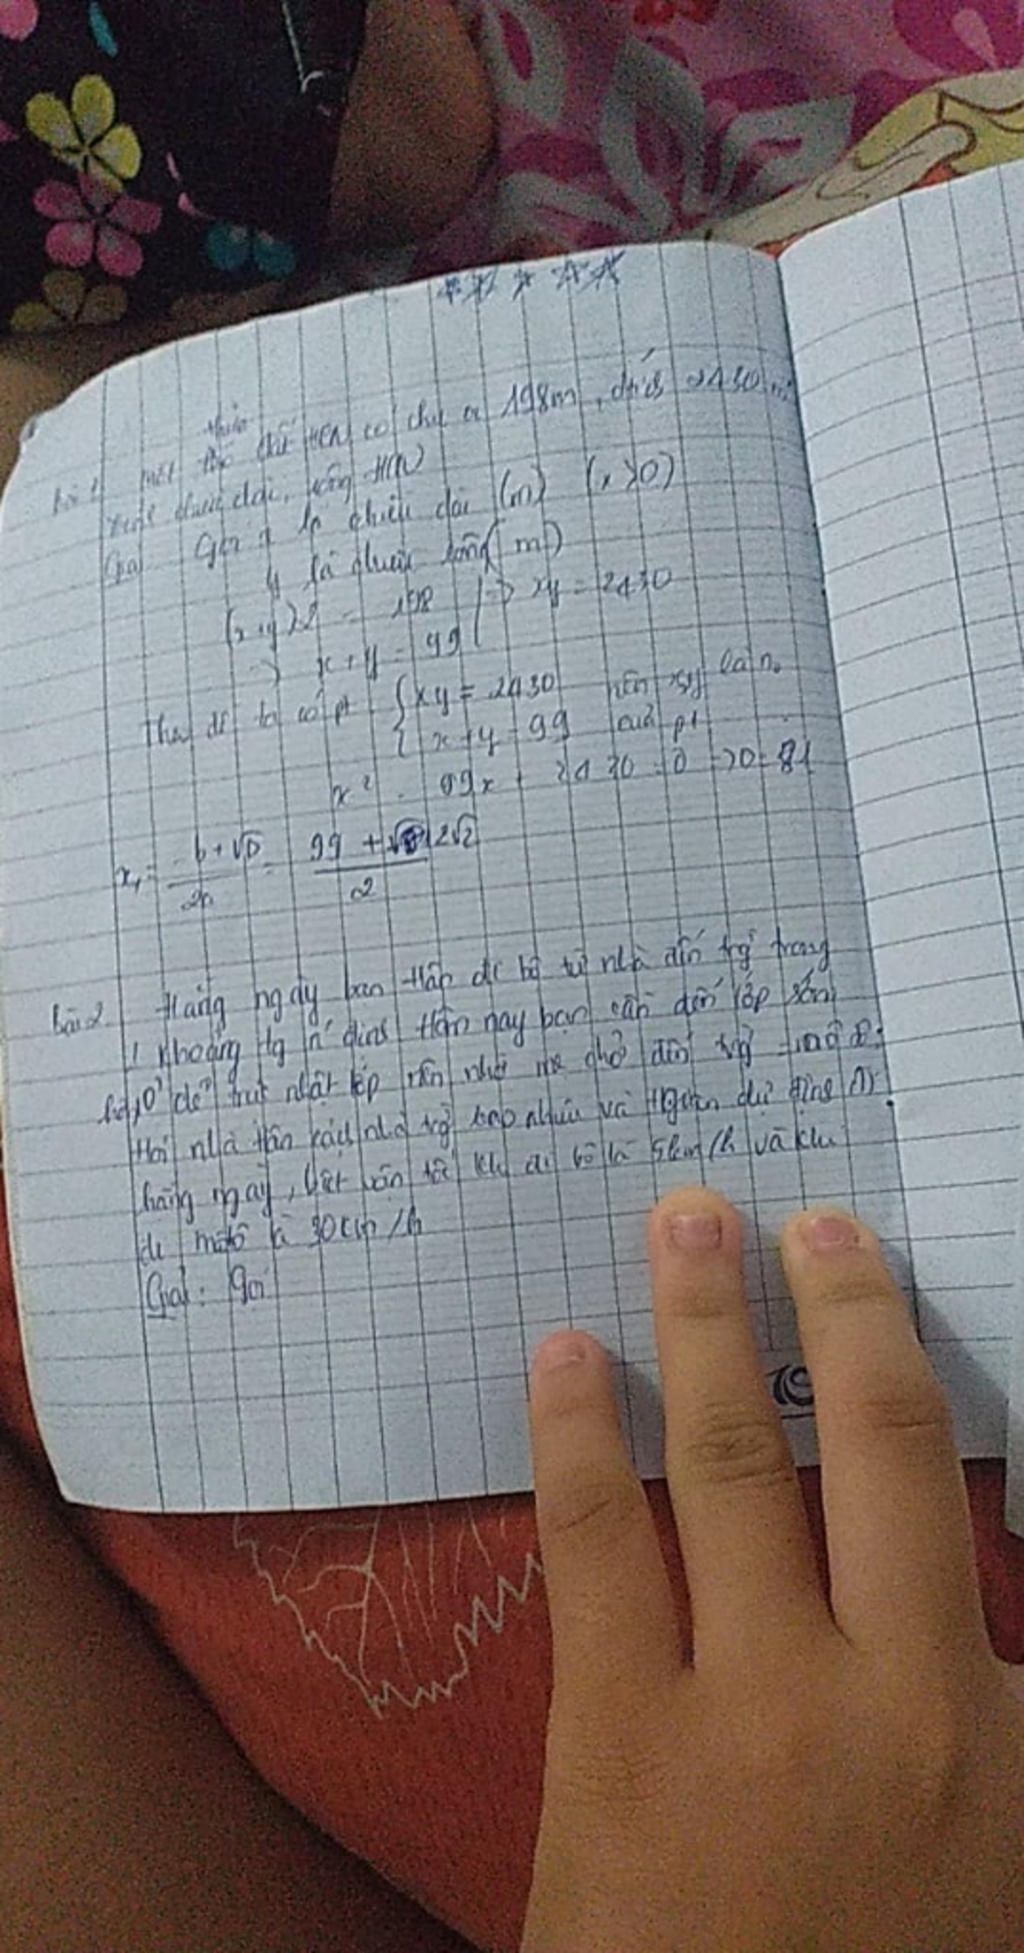 bài 1 một thửa đất HCN có chu vi 198m, dtích 2430 m
Tính chiều dài, rộng HCN
Giải Gọi x là chiều dài (m) (x>0)
y là chiều rộng (m)
(x+y).2 = 198 => xy = 2430
=> x+y = 99
Theo đề ta có pt { xy = 2430 nên x,y là n.
x+y = 99 của pt
x² - 99x + 2430 = 0 => D = 81
x₁ = -b+√D / 2a = 99 + 2√2 / 2
Bài 2 Hàng ngày bạn Hân đi bộ từ nhà đến trg trong
1 khoảng tg n' định Hôm nay bạn cần đến lớp sớm
10' để trực nhật lớp nên nhờ mẹ chở đến trg
Hỏi nhà Hân cách nhà trg bao nhiêu và tgian dự định đi
hàng ngày, biết vận tốc khi đi bộ là 5km/h và khi
đi môtô là 30km/h
Giải: Gọi